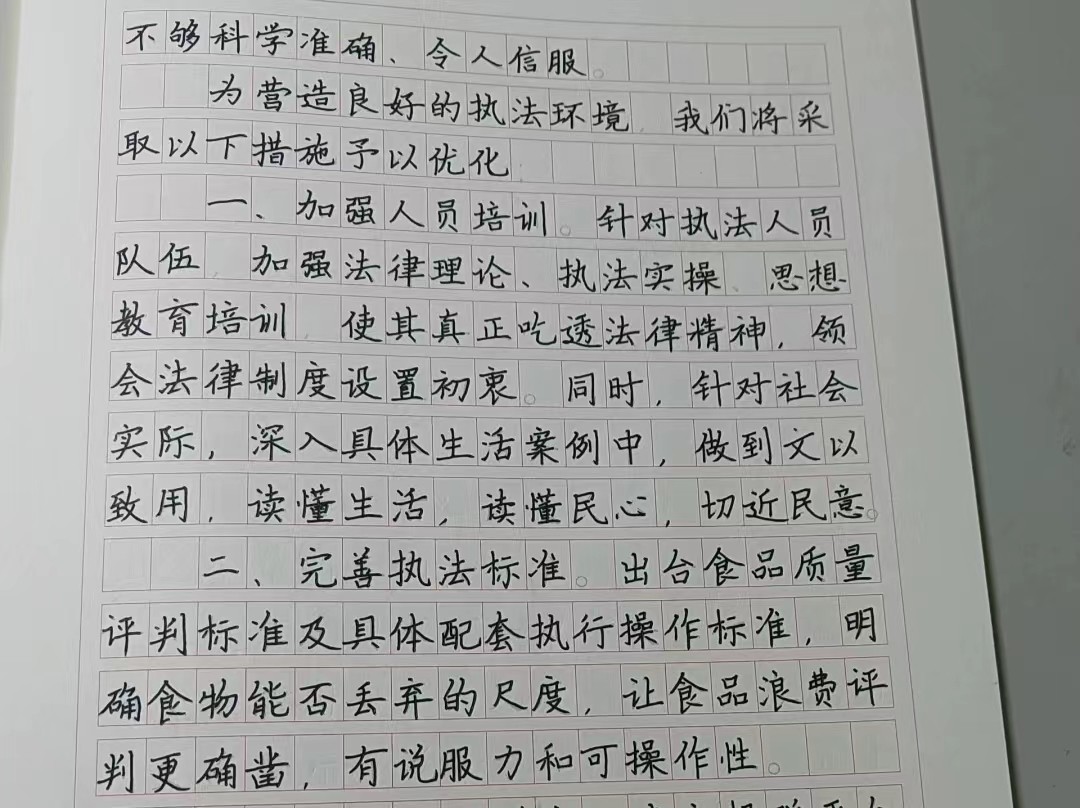 不够科学准确、令人信服。
为营造良好的执法环境 我们将采
取以下措施予以优化
一、加强人员培训。针对执法人员
队伍 加强法律理论、执法实操、思想
教育培训,使其真正吃透法律精神,领
会法律制度设置初衷。同时,针对社会
实际,深入具体生活案例中,做到文以
致用,读懂生活,读懂民心,切近民意。
二、完善执法标准。出台食品质量
评判标准及具体配套执行操作标准,明
确食物能否丢弃的尺度,让食品浪费评
判更确凿,有说服力和可操作性。